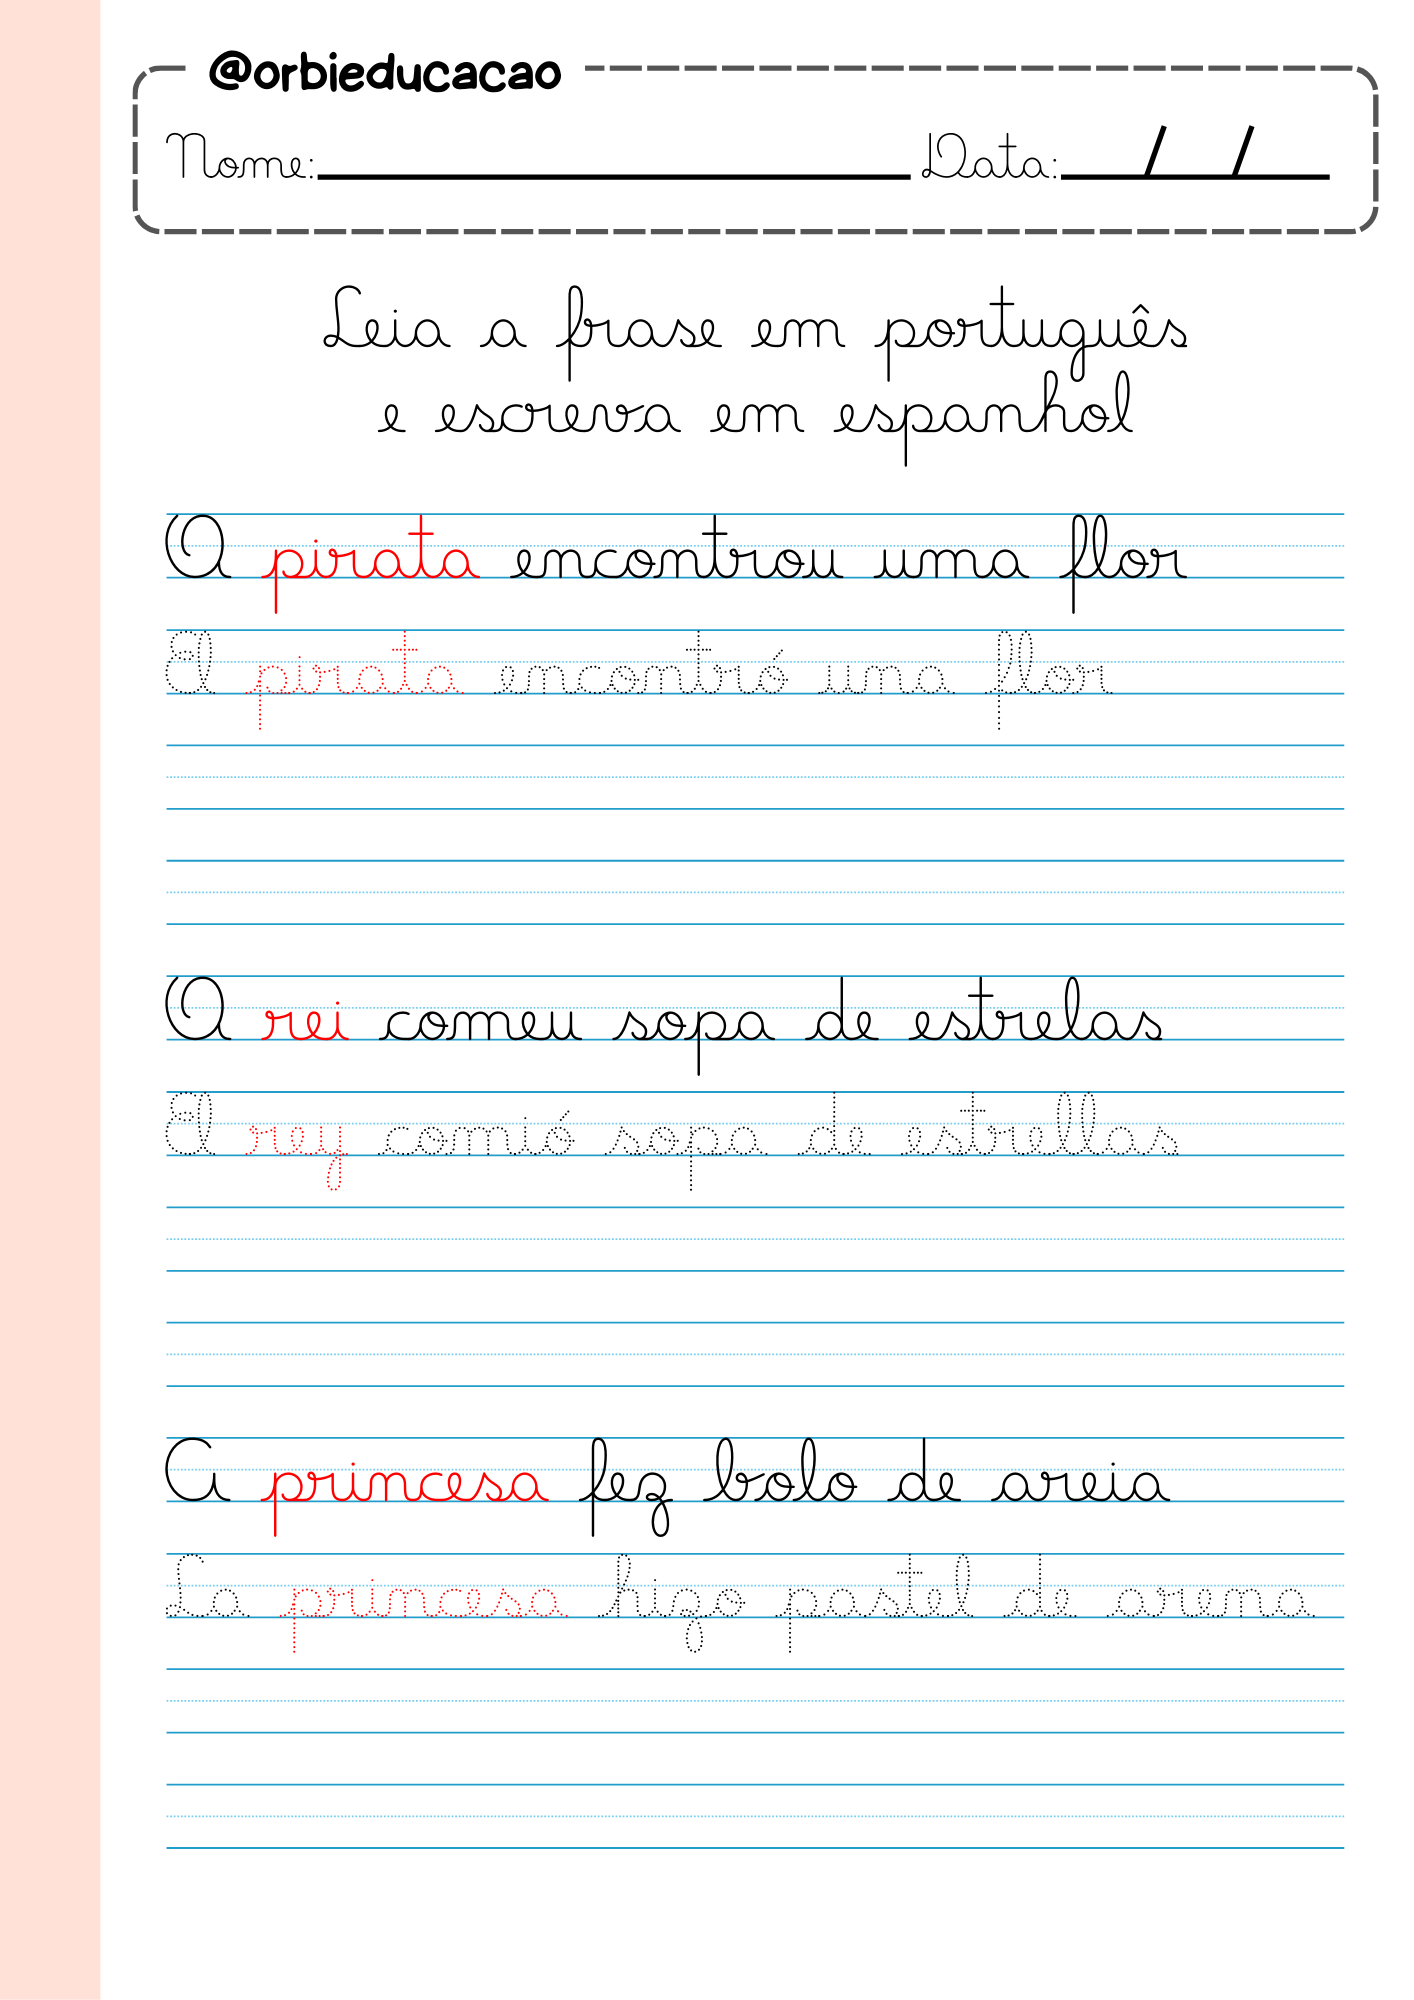 @orbieducacao
Nome: Data: / /
Leia a frase em português
e escreva em espanhol
O pirata encontrou uma flor
El pirata encontró una flor
O rei comeu sopa de estrelas
El rey comió sopa de estrellas
A princesa fez bolo de areia
La princesa hizo pastel de arena